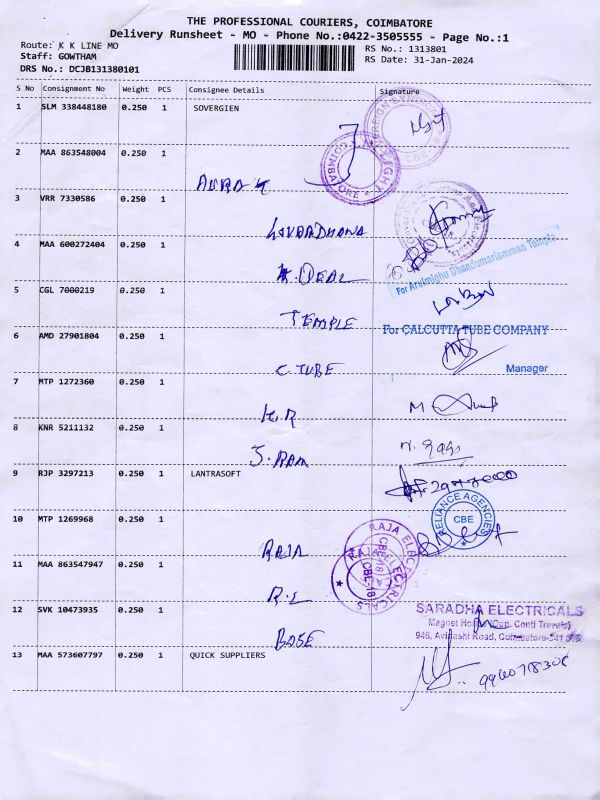 THE PROFESSIONAL COURIERS, COIMBATORE
Delivery Runsheet - MO - Phone No.:0422-3505555 - Page No.:1
Route: K K LINE MO
RS No.: 1313801
Staff: GOWTHAM
RS Date: 31-Jan-2024
DRS No.: DCJB131380101
S No Consignment No Weight PCS Consignee Details Signature
1 SLM 338448180 0.250 1 SOVERGIEN
2 MAA 863548004 0.250 1
3 VRR 7330586 0.250 1
4 MAA 600272404 0.250 1
IDEAL
For Arulmighu Dhandumariamman Temple
5 CGL 7000219 0.250 1
TEMPLE
For CALCUTTA TUBE COMPANY
6 AMD 27901804 0.250 1
C. TUBE
Manager
7 MTP 1272360 0.250 1
K.R
8 KNR 5211132 0.250 1
J. RAM
9 RJP 3297213 0.250 1 LANTRASOFT
10 MTP 1269968 0.250 1
RELIANCE AGENCIES
CBE
RAJA
RAJA ELECTRICALS
11 MAA 863547947 0.250 1
R.L
12 SVK 10473935 0.250 1
SARADHA ELECTRICALS
Magnet House (Opp. Conti Travels)
946, Avinashi Road, Coimbatore-641
BASE
13 MAA 573607797 0.250 1 QUICK SUPPLIERS